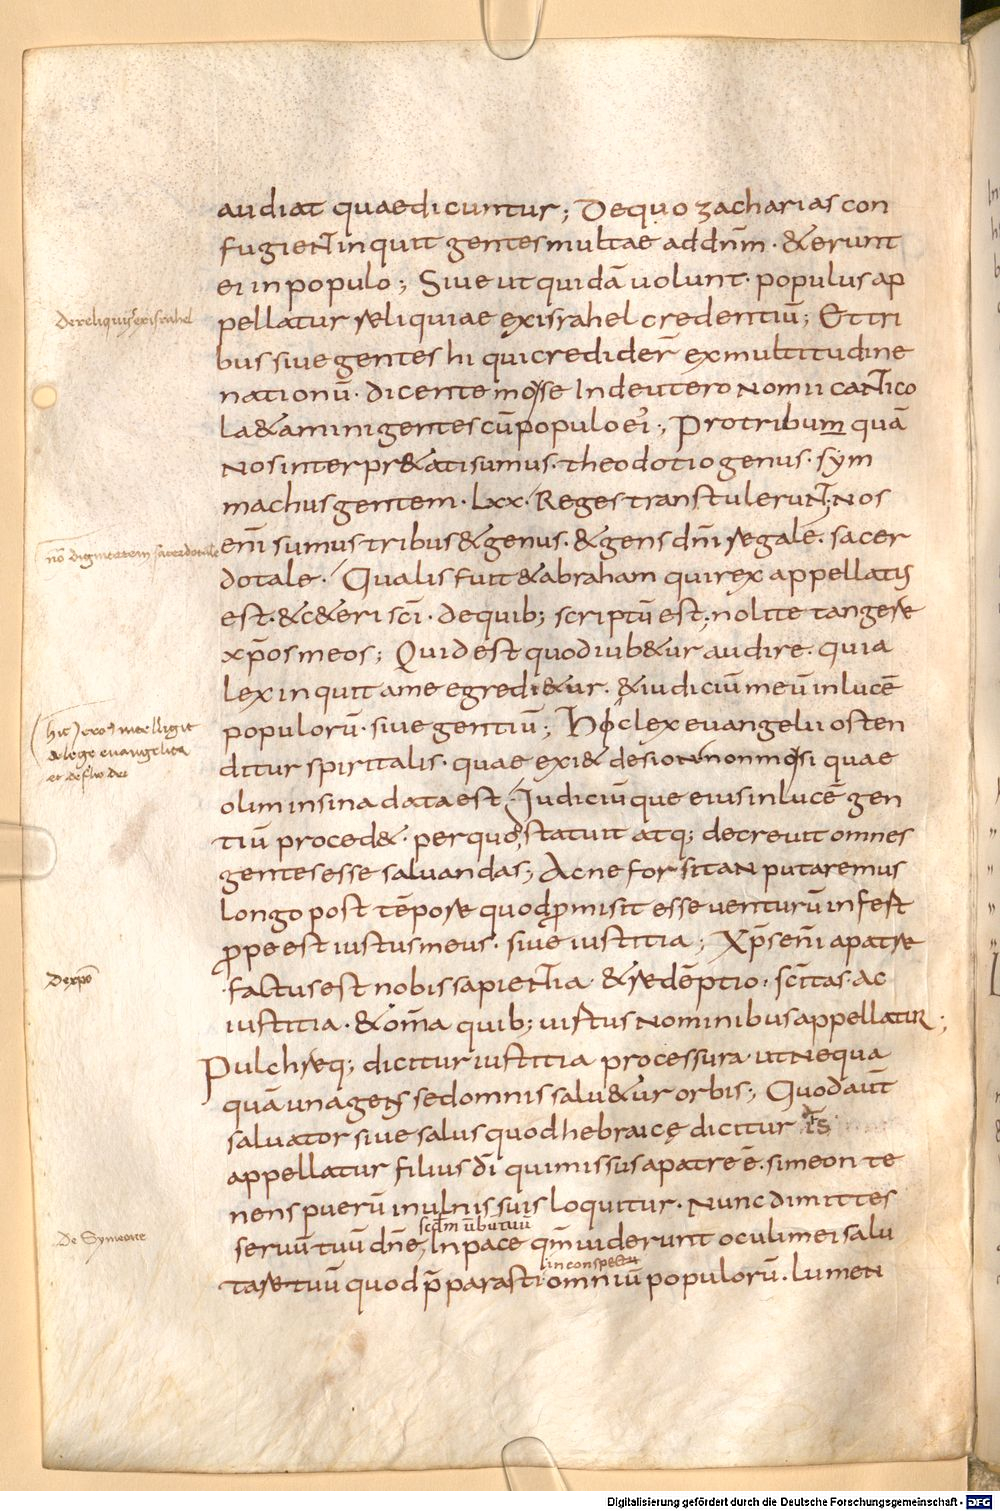 audiat quae dicuntur; De quo zacharias con
fugient inquit gentes multae ad dnm̄ · & erunt
ei in populo; Siue ut quidā uolunt · populus ap
De reliquiis ex israhel
pellatur reliquiae ex israhel credentiū; Et tri
bus siue gentes hi qui crediderr̄ ex multitudine
nationū · dicente mose In deuteronomii cantico
la&amini gentes cū populo ei'; Pro tribum quā
nos interpr&ati sumus · theodotio genus · sym
machus gentem · lxx · Reges transtulerunt; Nos
nō dignitatem sacerdotale
enī sumus tribus & genus · & gens dnī regale · sacer
dotale · Qualis fuit & abraham qui rex appellatus
est · & c&eri scī · de quib; scriptū est; nolite tangere
xp̄os meos; Quid est quod iub&ur audire · quia
lex inquit a me egredi&ur · & iudiciū meū in lucē
hic
intelligit
& lege euangelica
et de filio dei
populorū · siue gentiū; Hoc lex euangelii osten
ditur spiritalis · quae exi& de sion non mosi quae
olim in sina data est; Iudiciūque eius in lucē gen
tiū proced& · per quod statuit atq; decreuit omnes
gentes esse saluandas; Ac ne forsitan putaremus
longo post tēpore quod p̄misit esse uenturū infert
ꝓpe est iustus meus · siue iustitia; Xp̄s enī a patre
De xpō
factus est nobis sapientia · & redēptio · scītas · ac
iustitia · & om̄a quib; iustus nominibus appellatur;
Pulchreq; dicitur iustitia processura · ut nequa
quā una gens sed omnis salu&ur orbis; Quod aūt
saluator siue salus quod hebraicę dicitur īs
appellatur filius dī qui missus a patre ē · simeon te
nens puerū in ulnis suis loquitur · Nunc dimittes
scdm̄ uerbū tuū
De Symeone
seruū tuū dn̄e, In pace qm̄ uiderunt oculi mei salu
in conspectu
tare tuū quod p̄parasti omniū populorū · lumen
Digitalisierung gefördert durch die Deutsche Forschungsgemeinschaft - DFG